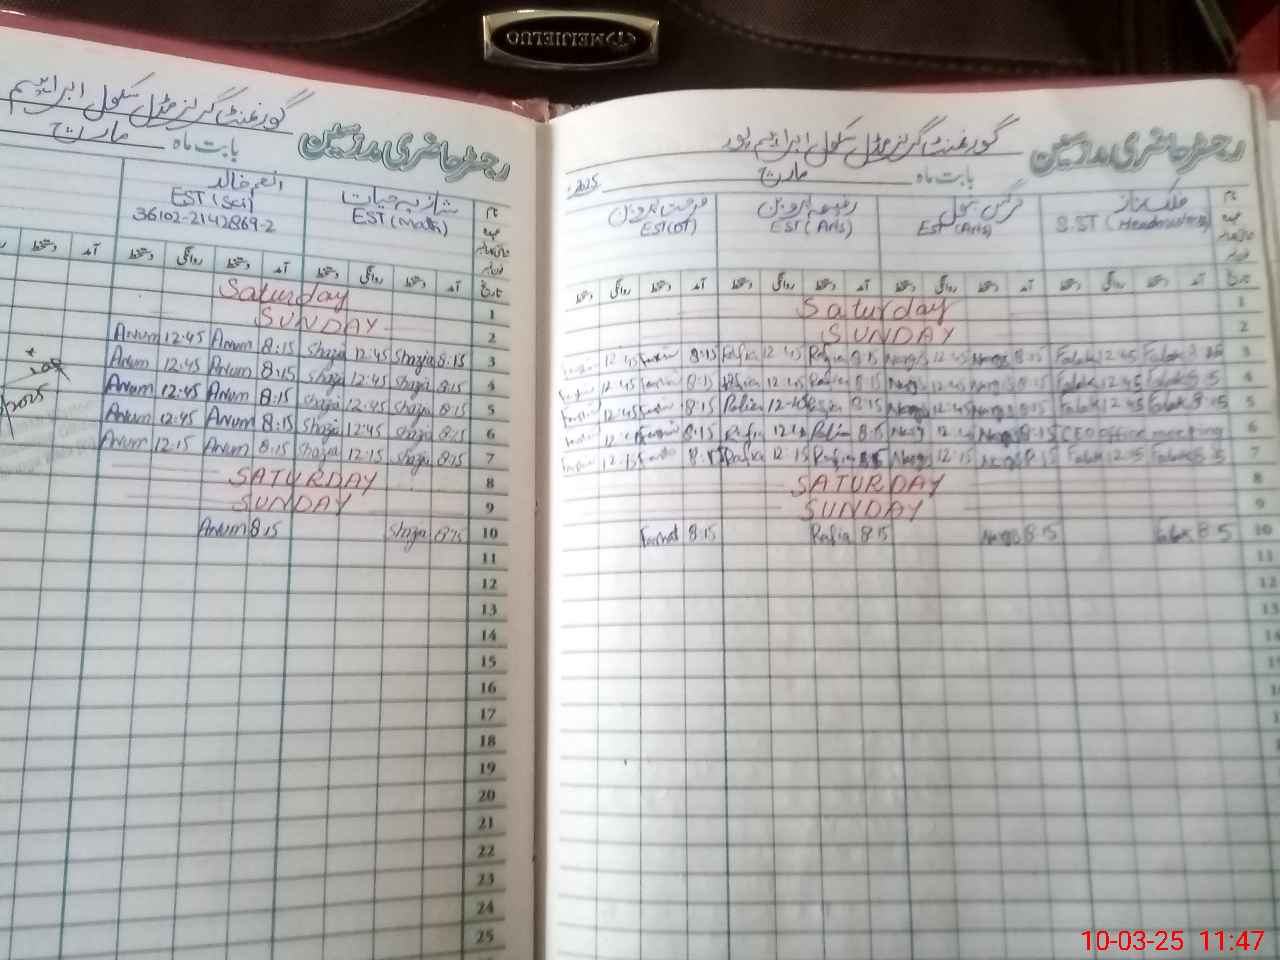 MEIJIELUO
گورنمنٹ گرلز مڈل سکول ابراہیم پور
رجسٹر حاضری مدرسین
بابت ماہ مارچ 2025
نام
عہدہ
فلک ناز
S.ST (Headmistress)
نرگس بتول
EST (Arts)
رفیعہ پروین
EST (Arts)
فرحت پروین
EST(DT)
تاریخ آمد دستخط روانگی دستخط آمد دستخط روانگی دستخط آمد دستخط روانگی دستخط آمد دستخط روانگی دستخط
Saturday 1
SUNDAY 2
12:45 8:15 Rafia 12:45 Rafia 8:15 Nargis 12:45 Nargis 8:15 Falak 12:45 Falak 8:15 3
12:45 8:15 Rafia 12:45 Rafia 8:15 Nargis 12:45 Nargis 8:15 Falak 12:45 Falak 8:15 4
12:45 8:15 Rafia 12:45 Rafia 8:15 Nargis 12:45 Nargis 8:15 Falak 12:45 Falak 8:15 5
12:45 8:15 Rafia Rafia 8:15 12:45 8:15 CEO office meeting 6
12:15 8:15 Rafia 12:15 Rafia 8:15 Nargis 12:15 Nargis 8:15 Falak Falak 8:15 7
SATURDAY 8
SUNDAY 9
Farhat 8:15 Rafia 8:15 Nargis 8:15 Falak 8:15 10
11
12
13
14
15
16
گورنمنٹ گرلز مڈل سکول ابراہیم
رجسٹر حاضری مدرسین
بابت ماہ مارچ
نام
عہدہ
شازیہ حیات
EST (Math)
انعم خالد
EST (Sci)
36102-2142869-2
تاریخ آمد دستخط روانگی دستخط آمد دستخط روانگی دستخط آمد دستخط
Saturday 1
SUNDAY 2
Anum 12:45 Anum 8:15 Shazia 12:45 Shazia 8:15 3
Anum 12:45 Anum 8:15 Shazia 12:45 Shazia 8:15 4
Anum 12:45 Anum 8:15 Shazia 12:45 Shazia 8:15 5
Anum 12:45 Anum 8:15 Shazia 12:45 Shazia 8:15 6
Anum 12:15 Anum 8:15 Shazia 12:15 Shazia 8:15 7
SATURDAY 8
SUNDAY 9
Anum 8:15 Shazia 8:15 10
11
12
13
14
15
16
17
18
19
20
21
22
23
24
25
2025
10-03-25 11:47